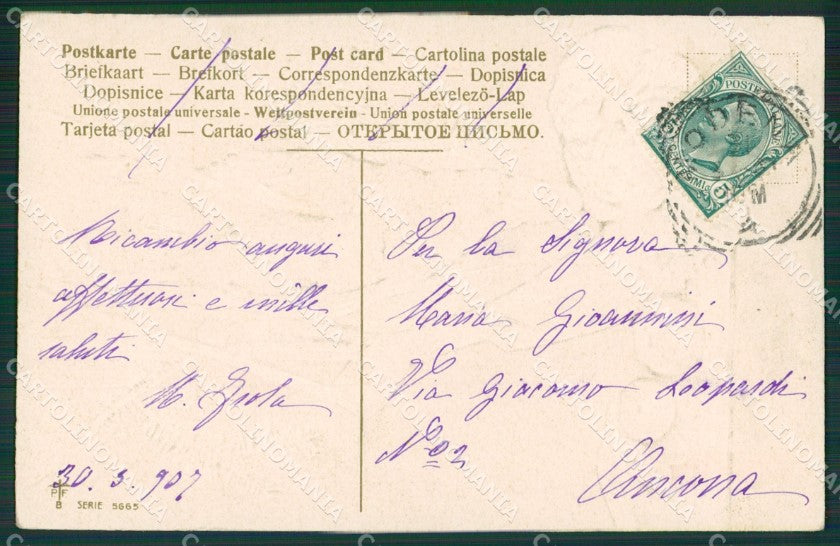 Postkarte — Carte postale — Post card — Cartolina postale
Briefkaart — Brefkort — Correspondenzkarte — Dopisnica
Dopisnice — Karta korespondencyjna — Levelező-Lap
Unione postale universale - Weltpostverein - Union postale universelle
Tarjeta postal — Cartão postal — ОТКРЫТОЕ ПИСЬМО.
POSTE ITALIANE
5
Ricambio auguri
affettuosi e mille
saluti
30. 3. 907
P F
B SERIE 5665
Per la Signora
Maria Gioannini
Via Giacomo Leopardi
No 2
Ancona
CARTOLINOMANIA